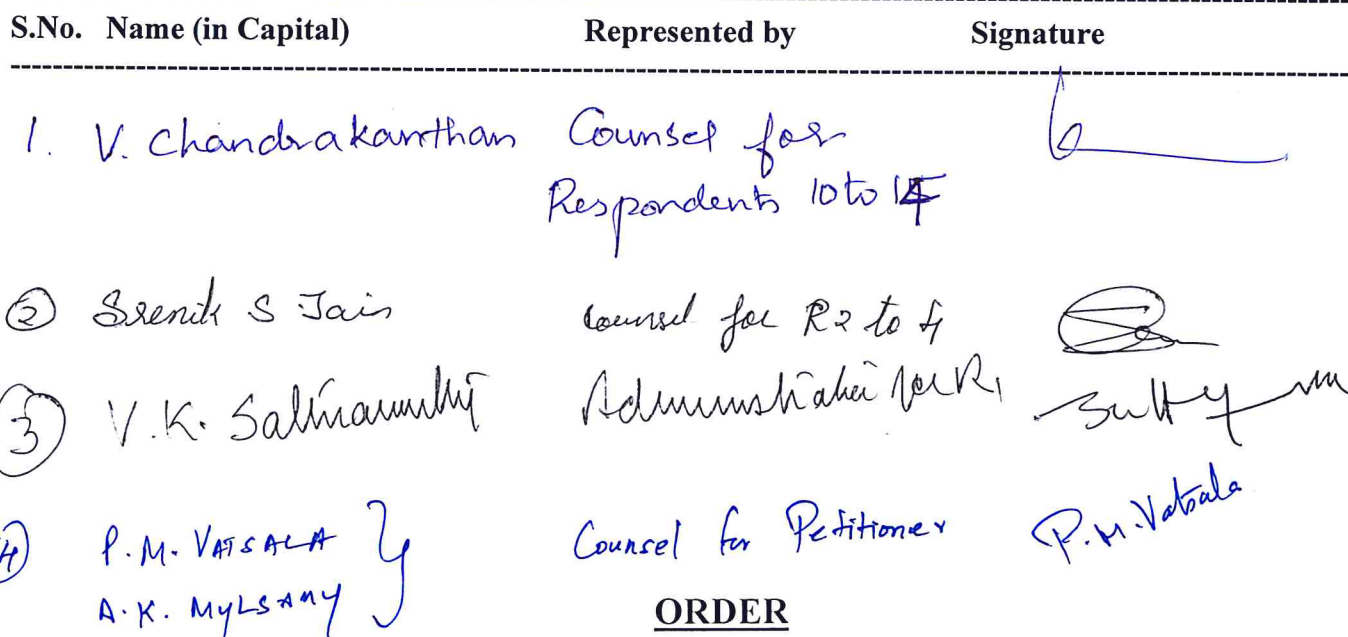 S.No. Name (in Capital) Represented by Signature
1. V. Chandrakanthan Counsel for
Respondents 10 to 14
2 Srenik S Jain counsel for R2 to 4
3 V.K. Sathiamurthy Administrator for R1
4 P.M. VATSALA Counsel for Petitioner P.M. Vatsala
A.K. MYLSAMY
ORDER